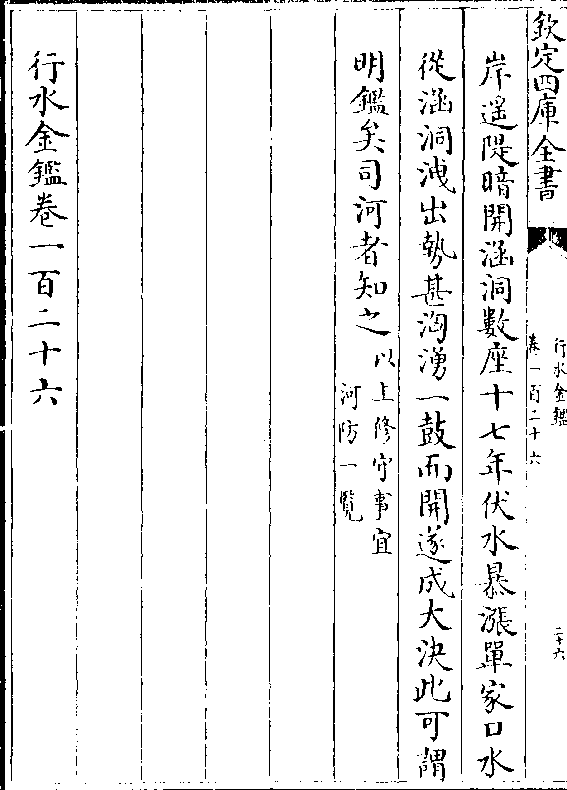 欽定四庫全書
行水金鑑
卷一百二十六
二十六
岸遥隄暗開涵洞數座十七年伏水暴漲單家口水
從涵洞洩出勢甚洶湧一鼓而開遂成大決此可謂
明鑑矣司河者知之
以上修守事宜
河防一覧
行水金鑑卷一百二十六